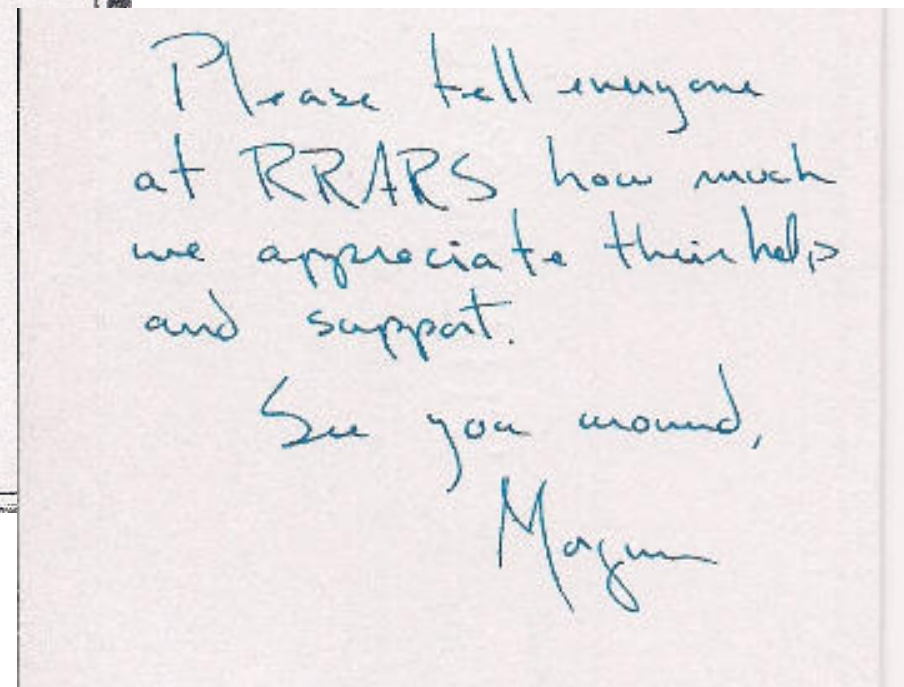 Please tell everyone
at RRARS how much
we appreciate their help
and support.
See you around,
Morgan